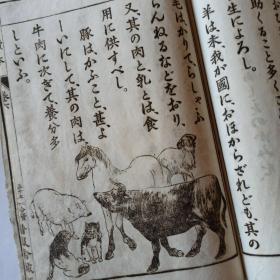 助くること多く
生によろし。
羊は未、我が國に、おほからざれども、其の
毛はかりてらしゃふ
らんねるなどをおり、
又其の肉と乳とは、食
用に供すべし。
豚はかふこと、甚よ
しいにして、其の肉は、
牛肉に次ぎて養分多
しといふ。